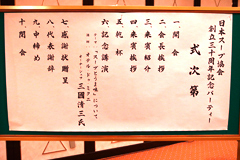 日本スープ協会
創立三十周年記念パーティー
式次第
一、開会
二、会長挨拶
三、来賓紹介
四、来賓挨拶
五、乾杯
六、記念講演
「スープとうま味」について
オテル・ドゥ・ミクニ
三國清三氏
七、感謝状贈呈
八、代表謝辞
九、中締め
十、閉会